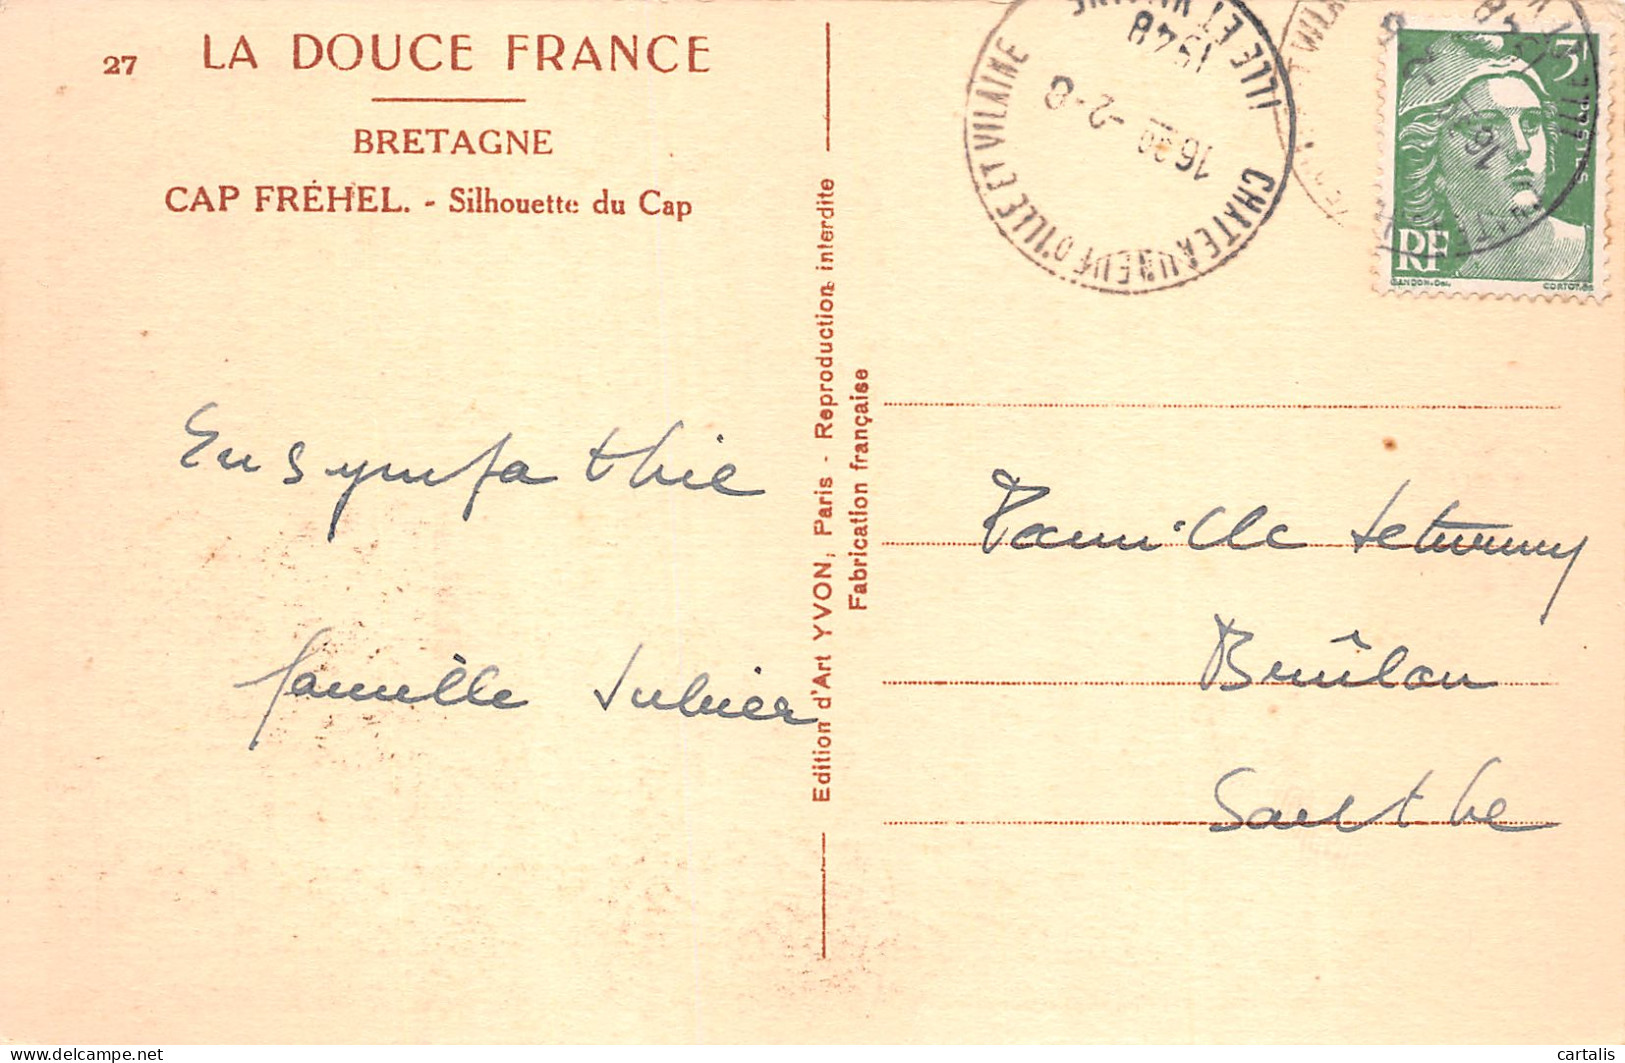 27 LA DOUCE FRANCE
BRETAGNE
CAP FRÉHEL. - Silhouette du Cap
En sympathie
famille
Edition d'Art YVON, Paris - Reproduction interdite
Fabrication française
CHATEAUNEUF D'ILLE ET VILAINE
ILLE ET VILAINE
16 30
2-8
1948
3F
POSTES
RF
GANDON-DEL.
CORTOT-SC
Famille
Brûlon
Sarthe
cartalis
www.delcampe.net